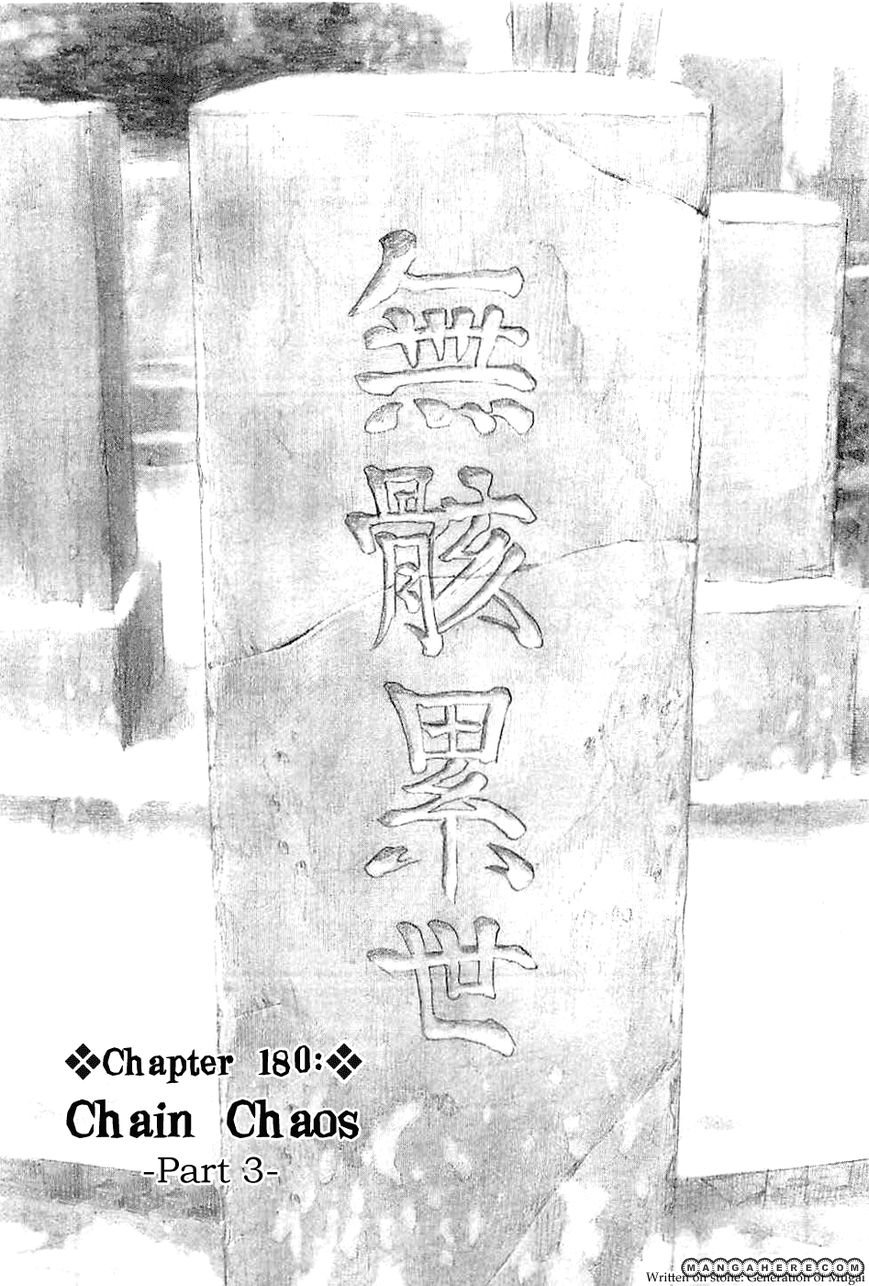 無骸累世
❖Chapter 180:❖
Chain Chaos
-Part 3-
MANGAHERE.COM
Written on stone: Generation of Mugai